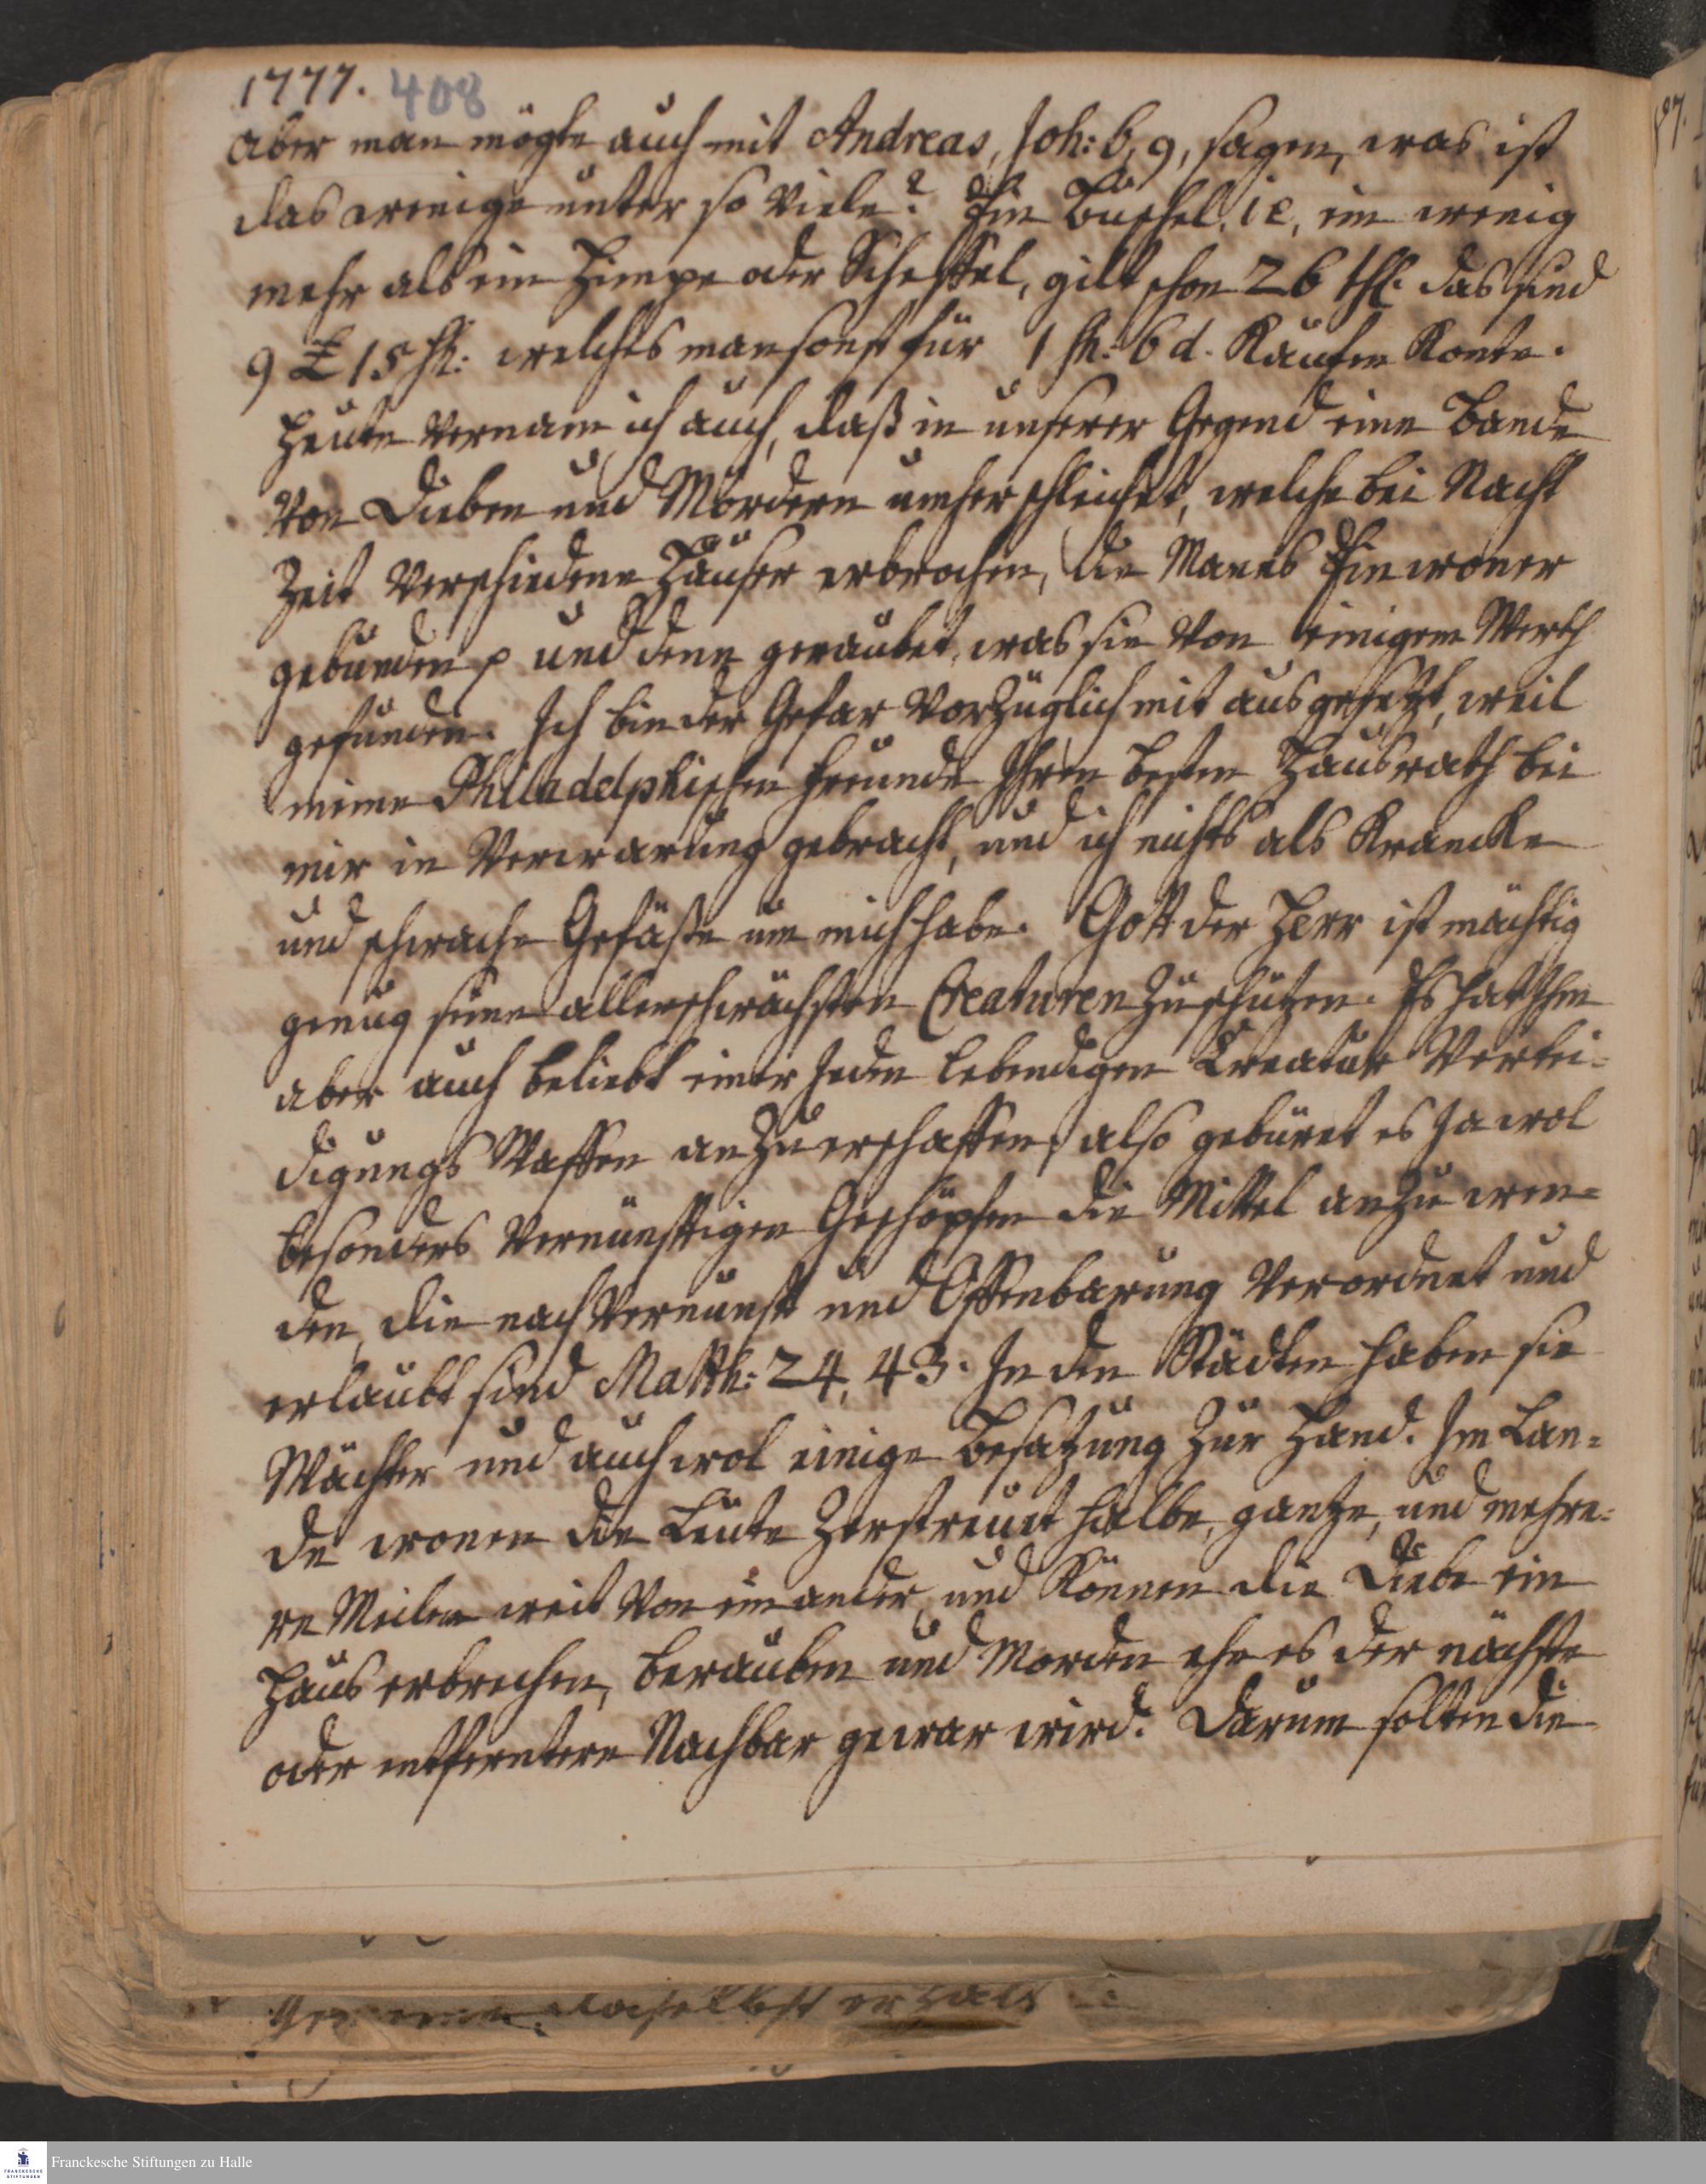 1777. 408
aber man mögte auch mit Andreas, Joh: 6, 9, sagen, was ist
das wenige unter so Viele? Ein Büschel, i e, ein wenig
mehr als ein Himpe oder Scheffel, gilt schon 26 thl. das sind
9 £ 15 ßh: welches man sonst für 1 ßh: 6 d. Kaufen Konte.
Heute Vernam ich auch, daß in unserer Gegend eine Bande
Von Dieben und Mördern umher schleichet, welche bei Nacht
Zeit Verschiedene Häuser erbrochen, die Manns Einwoner
gebunden p und denn geraubet, was sie Von einigem Werth
gefunden. Ich bin der Gefar Vorzüglich mit ausgesetzt, weil
meine Philadelphischen Freunde Ihren besten Hausrath bei
mir in Verwarung gebracht, und ich nichts als Krancke
und schwache Gefäße um mich habe. Gott der Herr ist mächtig
genug seine allerschwächsten Creaturen Zu schützen. Es hat Ihm
aber auch beliebt einer Jeden lebendigen Creatur Vertei-
digungs Waffen anZuerschaffen, also gebüret es Ja wol
besonders Vernünfftigen Geschöpfen die Mittel anZu wen-
den, die nach Vernunft und Offenbarung Verordnet und
erlaubt sind Matth: 24, 43. In den Städten haben sie
Wächter und auch wol einige Besatzung Zur Hand. Im Lan-
de wonen die Leute Zerstreuet halbe, gantze, und mehre-
re Meilen weit Von einander, und Können die Diebe ein
Haus erbrechen, berauben und Morden ehe es der nächste
oder entferntere Nachbar gewar wird. Darum solten die
daselbst
Franckesche Stiftungen zu Halle